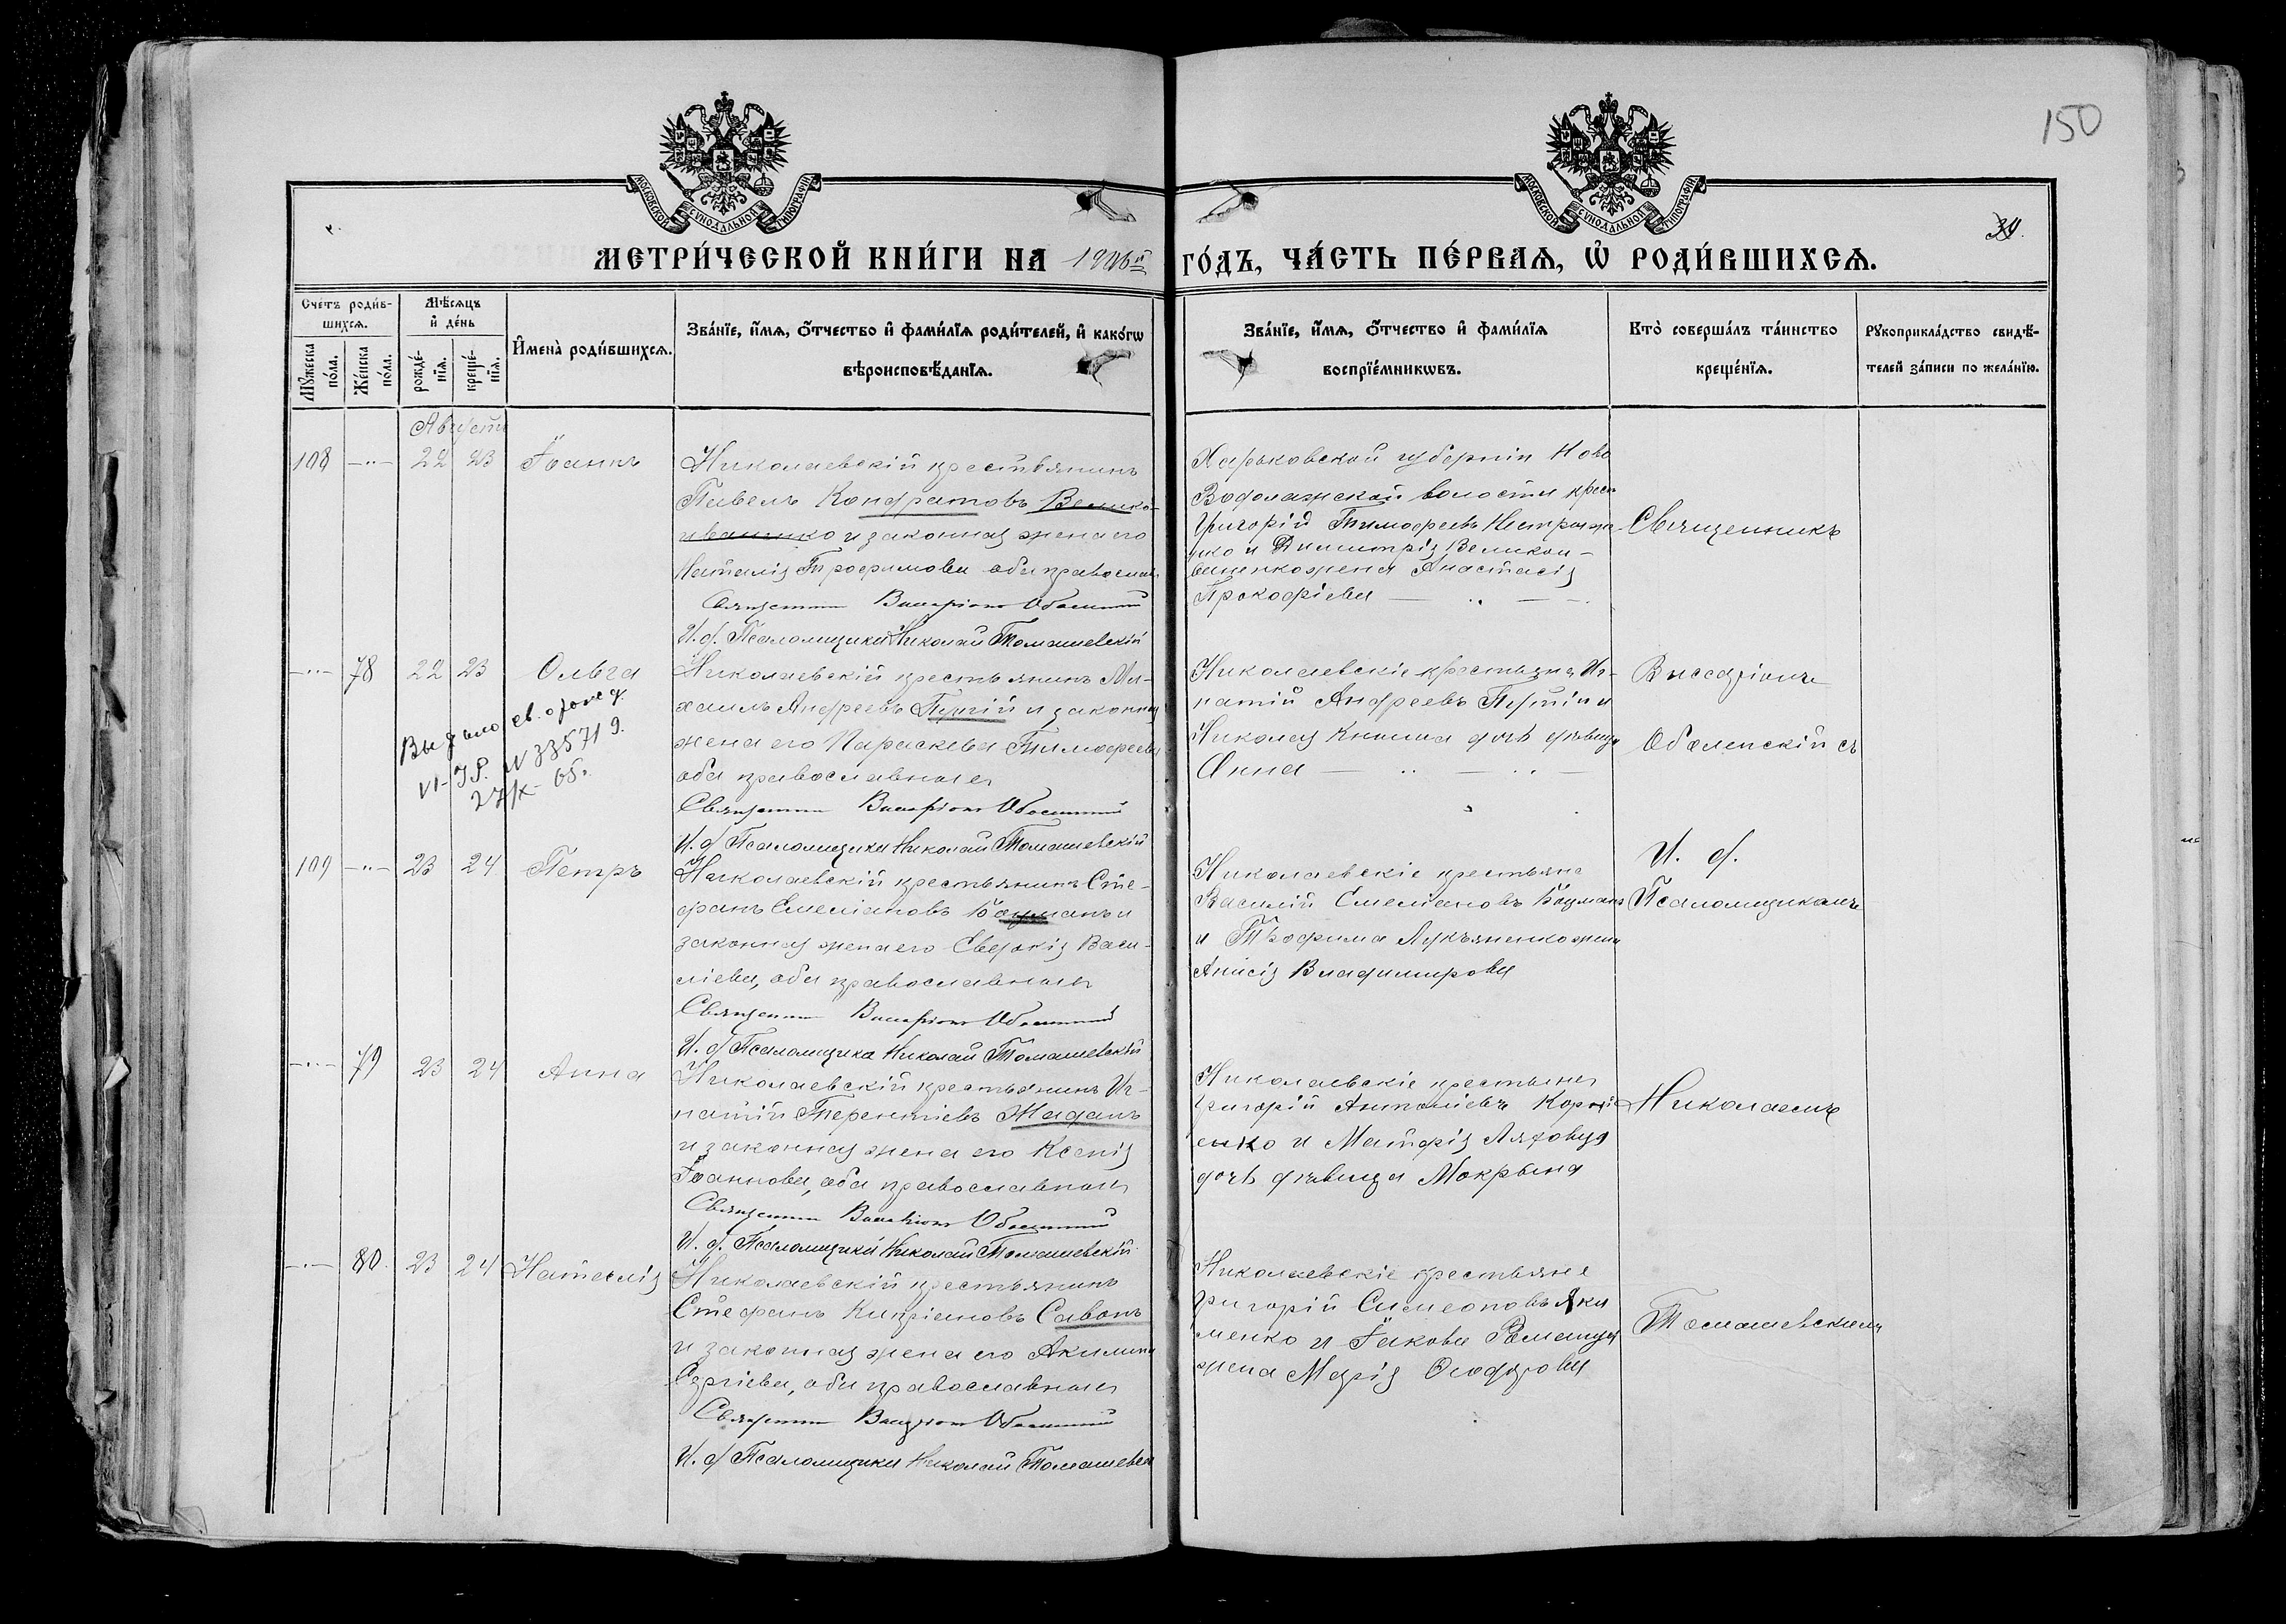 150
МОСКОВСКОЙ СѴНОДАЛЬНОЙ ТИПОГРАФІИ
МОСКОВСКОЙ СѴНОДАЛЬНОЙ ТИПОГРАФІИ
МЕТРИ́ЧЕСКОЙ КНИ́ГИ НА 1906й ГО́ДЪ, ЧА́СТЬ ПЕ́РВАѦ, Ѡ҆ РОДИ́ВШИХСѦ.
Сче́тъ роди́в-
шихсѧ.
Мꙋ́жеска по́ла.
Же́нска по́ла.
Мѣ́сѧцъ
и҆ де́нь
рожде́-
нїѧ.
креще́-
нїѧ.
И҆мена̀ роди́вшихсѧ.
Зва́нїе, и҆́мѧ, ѻ҆́тчество и҆ фами́лїѧ роди́телей, и҆ како́гѡ
вѣроисповѣ́данїѧ.
Зва́нїе, и҆́мѧ, ѻ҆́тчество и҆ фами́лїѧ
воспрїе́мникѡвъ.
Кто̀ соверша́лъ та́инство
креще́нїѧ.
Рꙋкоприкла́дство свидѣ́-
телей за́писи по жела́нїю.
Августъ
108 22 23 Іоаннъ
Николаевскій крестьянинъ
Павелъ Кондратовъ Велико-
иваненко и законная жена его
Наталія Трофимова оба православн
Священник Виссаріонъ Оболенскій
И. д. Псаломщика Николай Томашевскій
Харьковской губерніи Ново
Водолажской волости крест
Григорій Тимофеевъ
и Димитрія Великои-
ваненко жена Анастасія
Прокофіева
78 22 23 Ольга
Выдано св. о рожд.
VI-ЈР. N 335719.
27/X- 65г.
Николаевскій крестьянинъ Ми-
хаилъ Андреевъ и законная
жена его Параскева Тимофеева
оба православные
Священник Виссаріонъ Оболенскій
И. д. Псаломщика Николай Томашевскій
Николаевскіе крестьяне Иг-
натій Андреевъ и
Николая Книша дочь дѣвица
Анна
109 23 24 Петръ
Николаевскій крестьянинъ Сте-
фанъ Емеліановъ Бацманъ и
законная жена его Евдокія Васи-
ліева, оба православные
Священник Виссаріонъ Оболенскій
И. д. Псаломщика Николай Томашевскій
Николаевскіе крестьяне
Василій Емеліановъ Бацманъ
и Трофима Лукьяненко жена
Анисія Владимирова
79 23 24 Анна
Николаевскій крестьянинъ Иг-
натій Терентіевъ Жаданъ
и законная жена его Ксенія
Іоаннова, оба православные
Священник Виссаріонъ Оболенскій
И. д. Псаломщика Николай Томашевскій
Николаевскіе крестьяне
Григорій Антоніевъ Корні-
енко и Матфія Ляховца
дочь дѣвица Мокрына
80. 23 24 Наталія
Николаевскій крестьянинъ
Стефанъ Кипріановъ Савонъ
и законная жена его Акилина
Сергіева, оба православные
Священник Виссаріонъ Оболенскій
И. д. Псаломщика Николай Томашевскій
Николаевскіе крестьяне
Григорій Симеоновъ Яки
менко и Іакова
жена Марія Ѳеодорова
Священникъ
Виссаріонъ
Оболенскій съ
И. д.
Псаломщикомъ
Николаемъ
Томашевскимъ